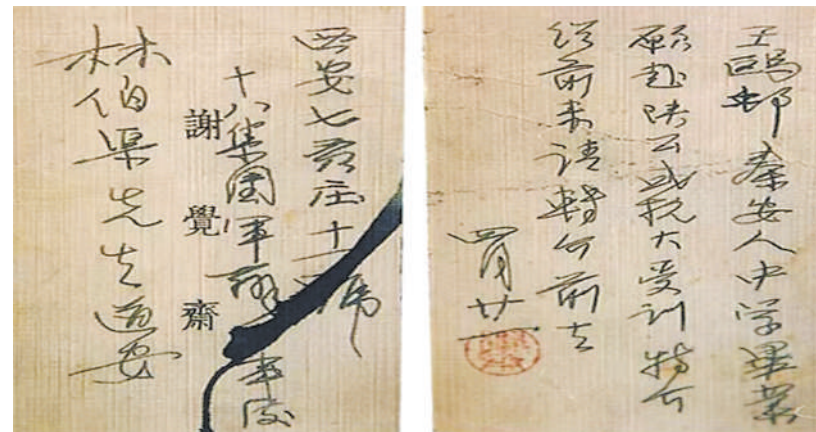 王鸥邨 秦安人中学畢業
願赴陕公或抗大受训特介
绍前来请轉介前去
四月廿一
西安七贤庄十一號
十八集团軍辦事處
謝覺齋
林伯渠先生道安